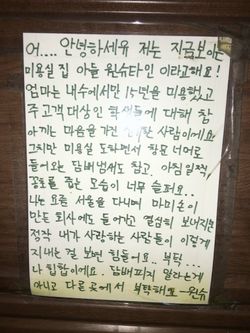 어.... 안녕하세유 저는 지금보이는
미용실 집 아들 원슈타인 이라고해요!
엄마는 내수에서만 15년을 미용했고
주고객 대상인 학생들에 대해 참
아끼는 마음을 가진 사람이에요
그치만 미용실 도와면서 창문 너머로
들어오는 담배냄새도 참고. 아침일찍
꽁초를 줍는 모습이 너무 슬퍼요..
나는 요즘 서울을 다니며 마미손이
만든 회사에도 들어가고 열심히 보내지만
정작 내가 사랑하는 사람들이 이렇게
지내는 걸 보면 힘들어요. 부탁...
나 힙합이에요. 담배피지 말라는게
아니고 다른곳에서 부탁해요 - 원슈